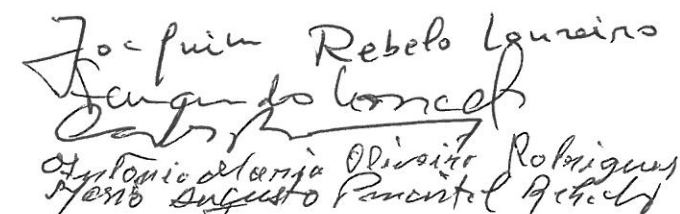 Joaquim Rebelo Loureiro
Fernando
Carlos
António Maria Oliveira Rodrigues
Mário Augusto Pimentel